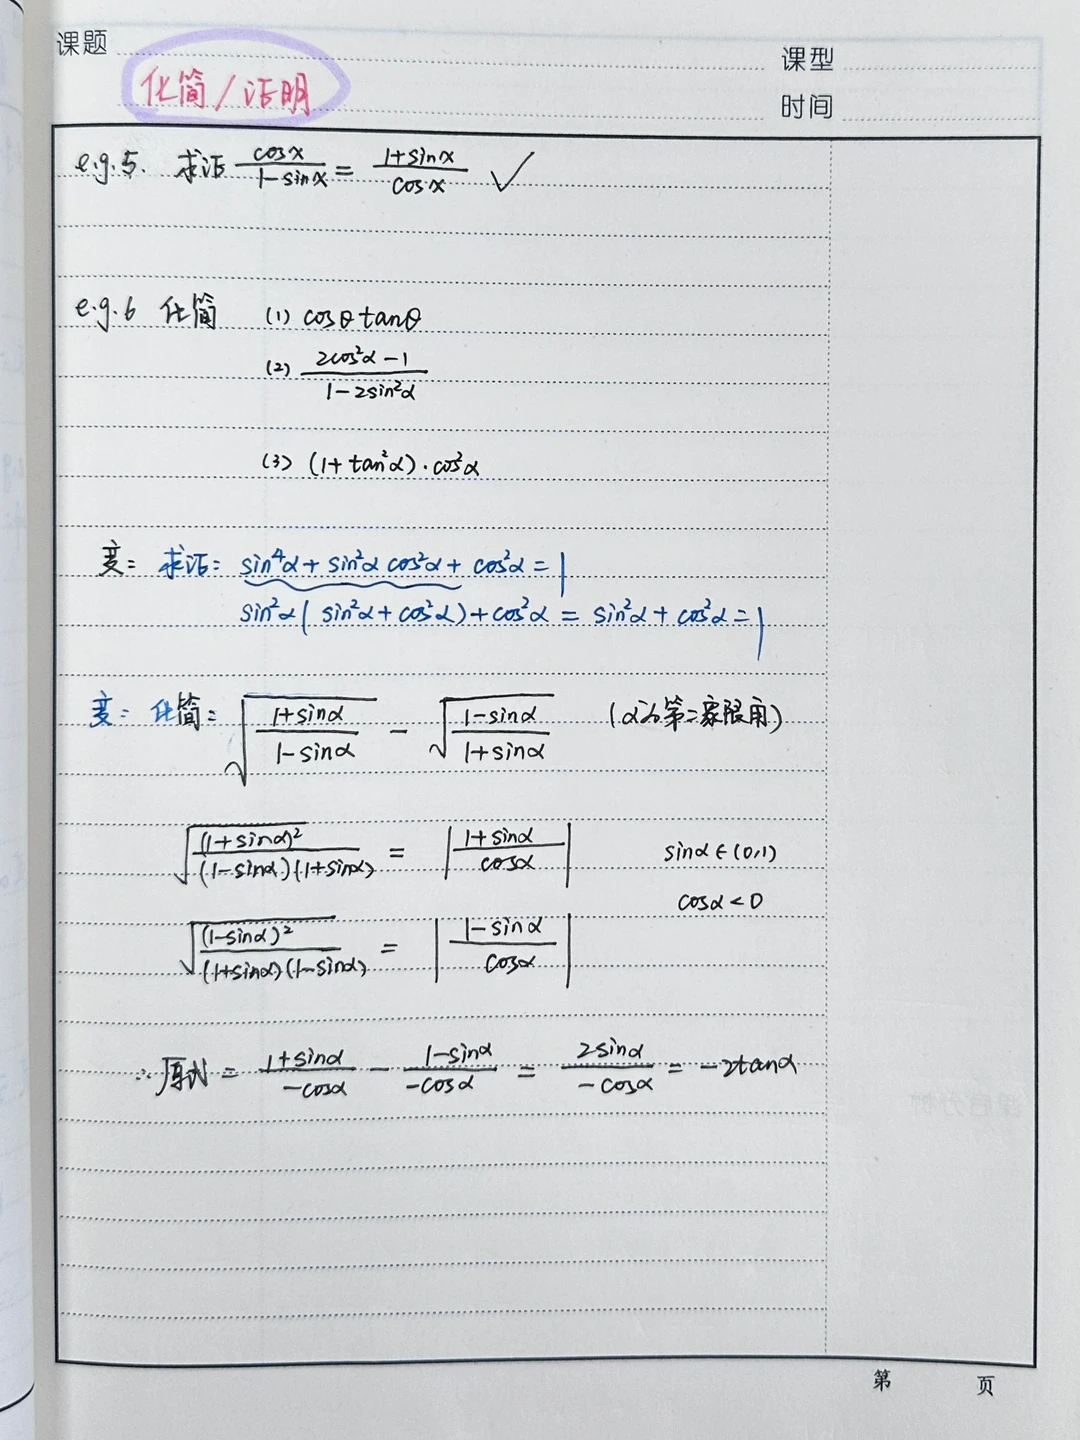 课题
课型
化简/证明
时间
e.g.5. 求证 cosx/(1-sinx) = (1+sinx)/cosx ✓
e.g.6 化简 (1) cosθtanθ
(2) (2cos²α-1)/(1-2sin²α)
(3) (1+tan²α)·cos²α
变: 求证: sin⁴α+sin²αcos²α+cos²α=1
sin²α(sin²α+cos²α)+cos²α = sin²α+cos²α=1
变: 化简: √((1+sinα)/(1-sinα)) - √((1-sinα)/(1+sinα)) (α为第二象限角)
√((1+sinα)²/((1-sinα)(1+sinα))) = |(1+sinα)/cosα| sinα∈(0,1)
cosα<0
√((1-sinα)²/((1+sinα)(1-sinα))) = |(1-sinα)/cosα|
∴原式 = (1+sinα)/(-cosα) - (1-sinα)/(-cosα) = 2sinα/(-cosα) = -2tanα
第 页